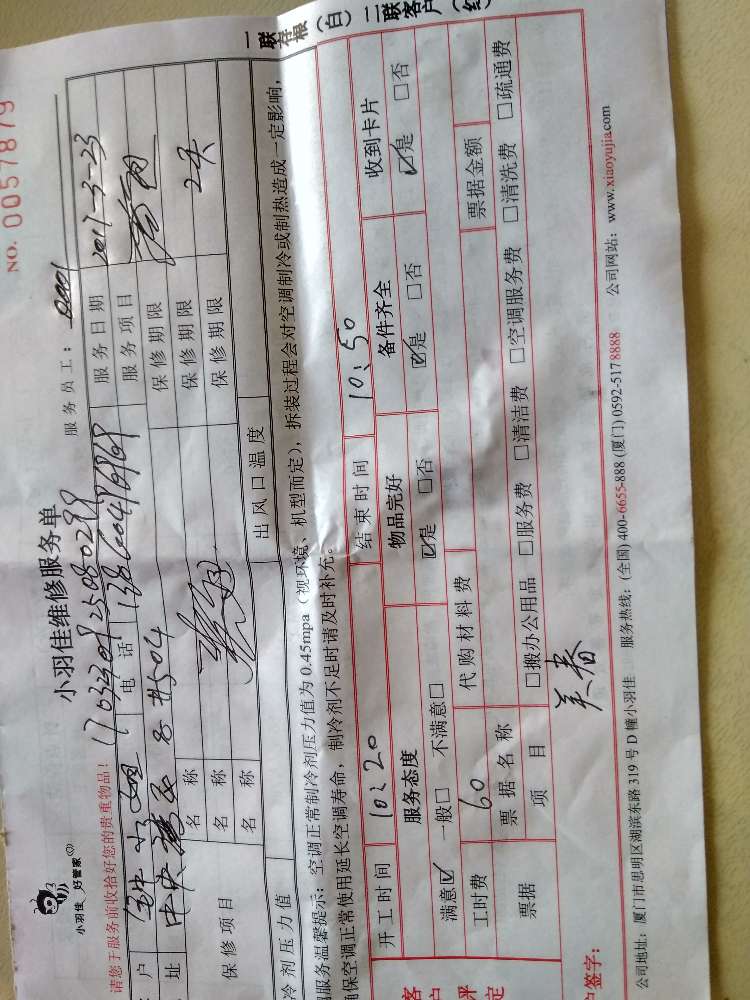 一联存根（白）二联客户（红
NO. 0057879
小羽佳 好管家
小羽佳维修服务单
服务员工：
请您于服务前收拾好您的贵重物品！
户
电话
服务日期 2017-3-23
址 中央
8#504
服务项目
保修项目
名称
保修期限
名称
保修期限 2天
名称
保修期限
冷剂压力值
出风口温度
调服务温馨提示：空调正常制冷剂压力值为0.45mpa（视环境、机型而定），拆装过程会对空调制冷或制热造成一定影响，
确保空调正常使用延长空调寿命，制冷剂不足时请及时补充。
开工时间 10:20 结束时间 10:50
客户评定
服务态度 物品完好 备件齐全 收到卡片
满意☑ 一般□ 不满意□ ☑是 □否 ☑是 □否 ☑是 □否
工时费 60 代购材料费
票据 票据名称 票据金额
项目 □搬办公用品 □服务费 □清洁费 □空调服务费 □清洗费 □疏通费
户签字：
公司地址：厦门市思明区湖滨东路319号D幢小羽佳 服务热线：(全国) 400-6655-888 (厦门) 0592-5178888 公司网站：www.xiaoyujia.com